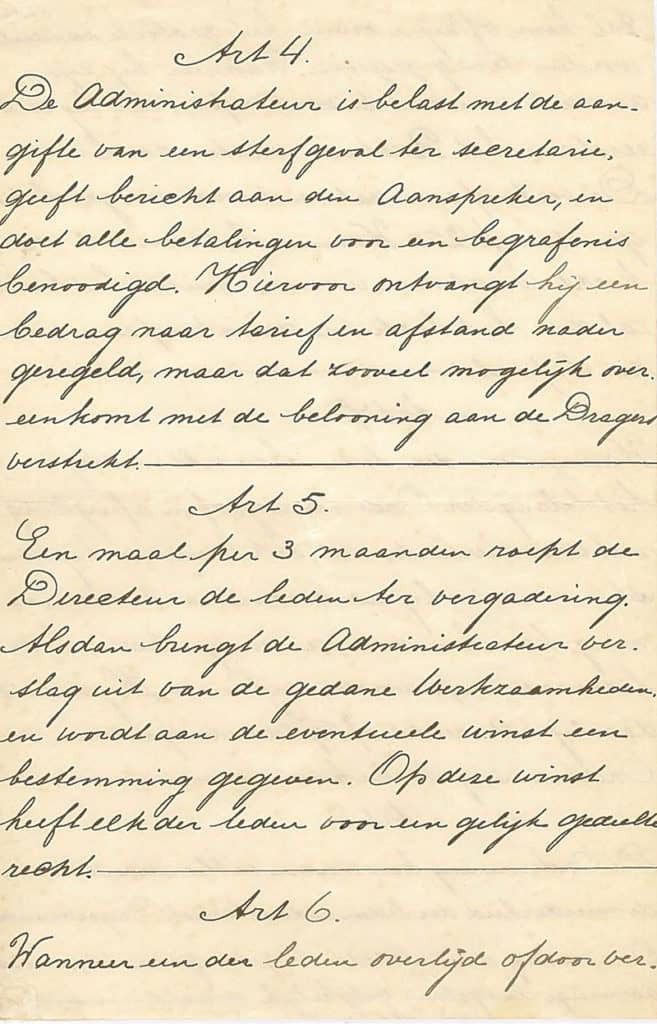 Art 4.
De Administrateur is belast met de aan-
gifte van een sterfgeval ter secretarie,
geeft bericht aan den Aanspreker, en
doet alle betalingen voor een begrafenis
benoodigd. Hiervoor ontvangt hij een
bedrag naar tarief en afstand nader
geregeld, maar dat zooveel mogelijk over-
eenkomt met de belooning aan de Dragers
verstrekt.
Art 5.
Een maal per 3 maanden roept de
Directeur de leden ter vergadering.
Alsdan brengt de Administrateur ver-
slag uit van de gedane werkzaamheden,
en wordt aan de eventueele winst een
bestemming gegeven. Op deze winst
heeft elk der leden voor een gelijk gedeelte
recht.
Art 6.
Wanneer een der leden overlijd of door ver-